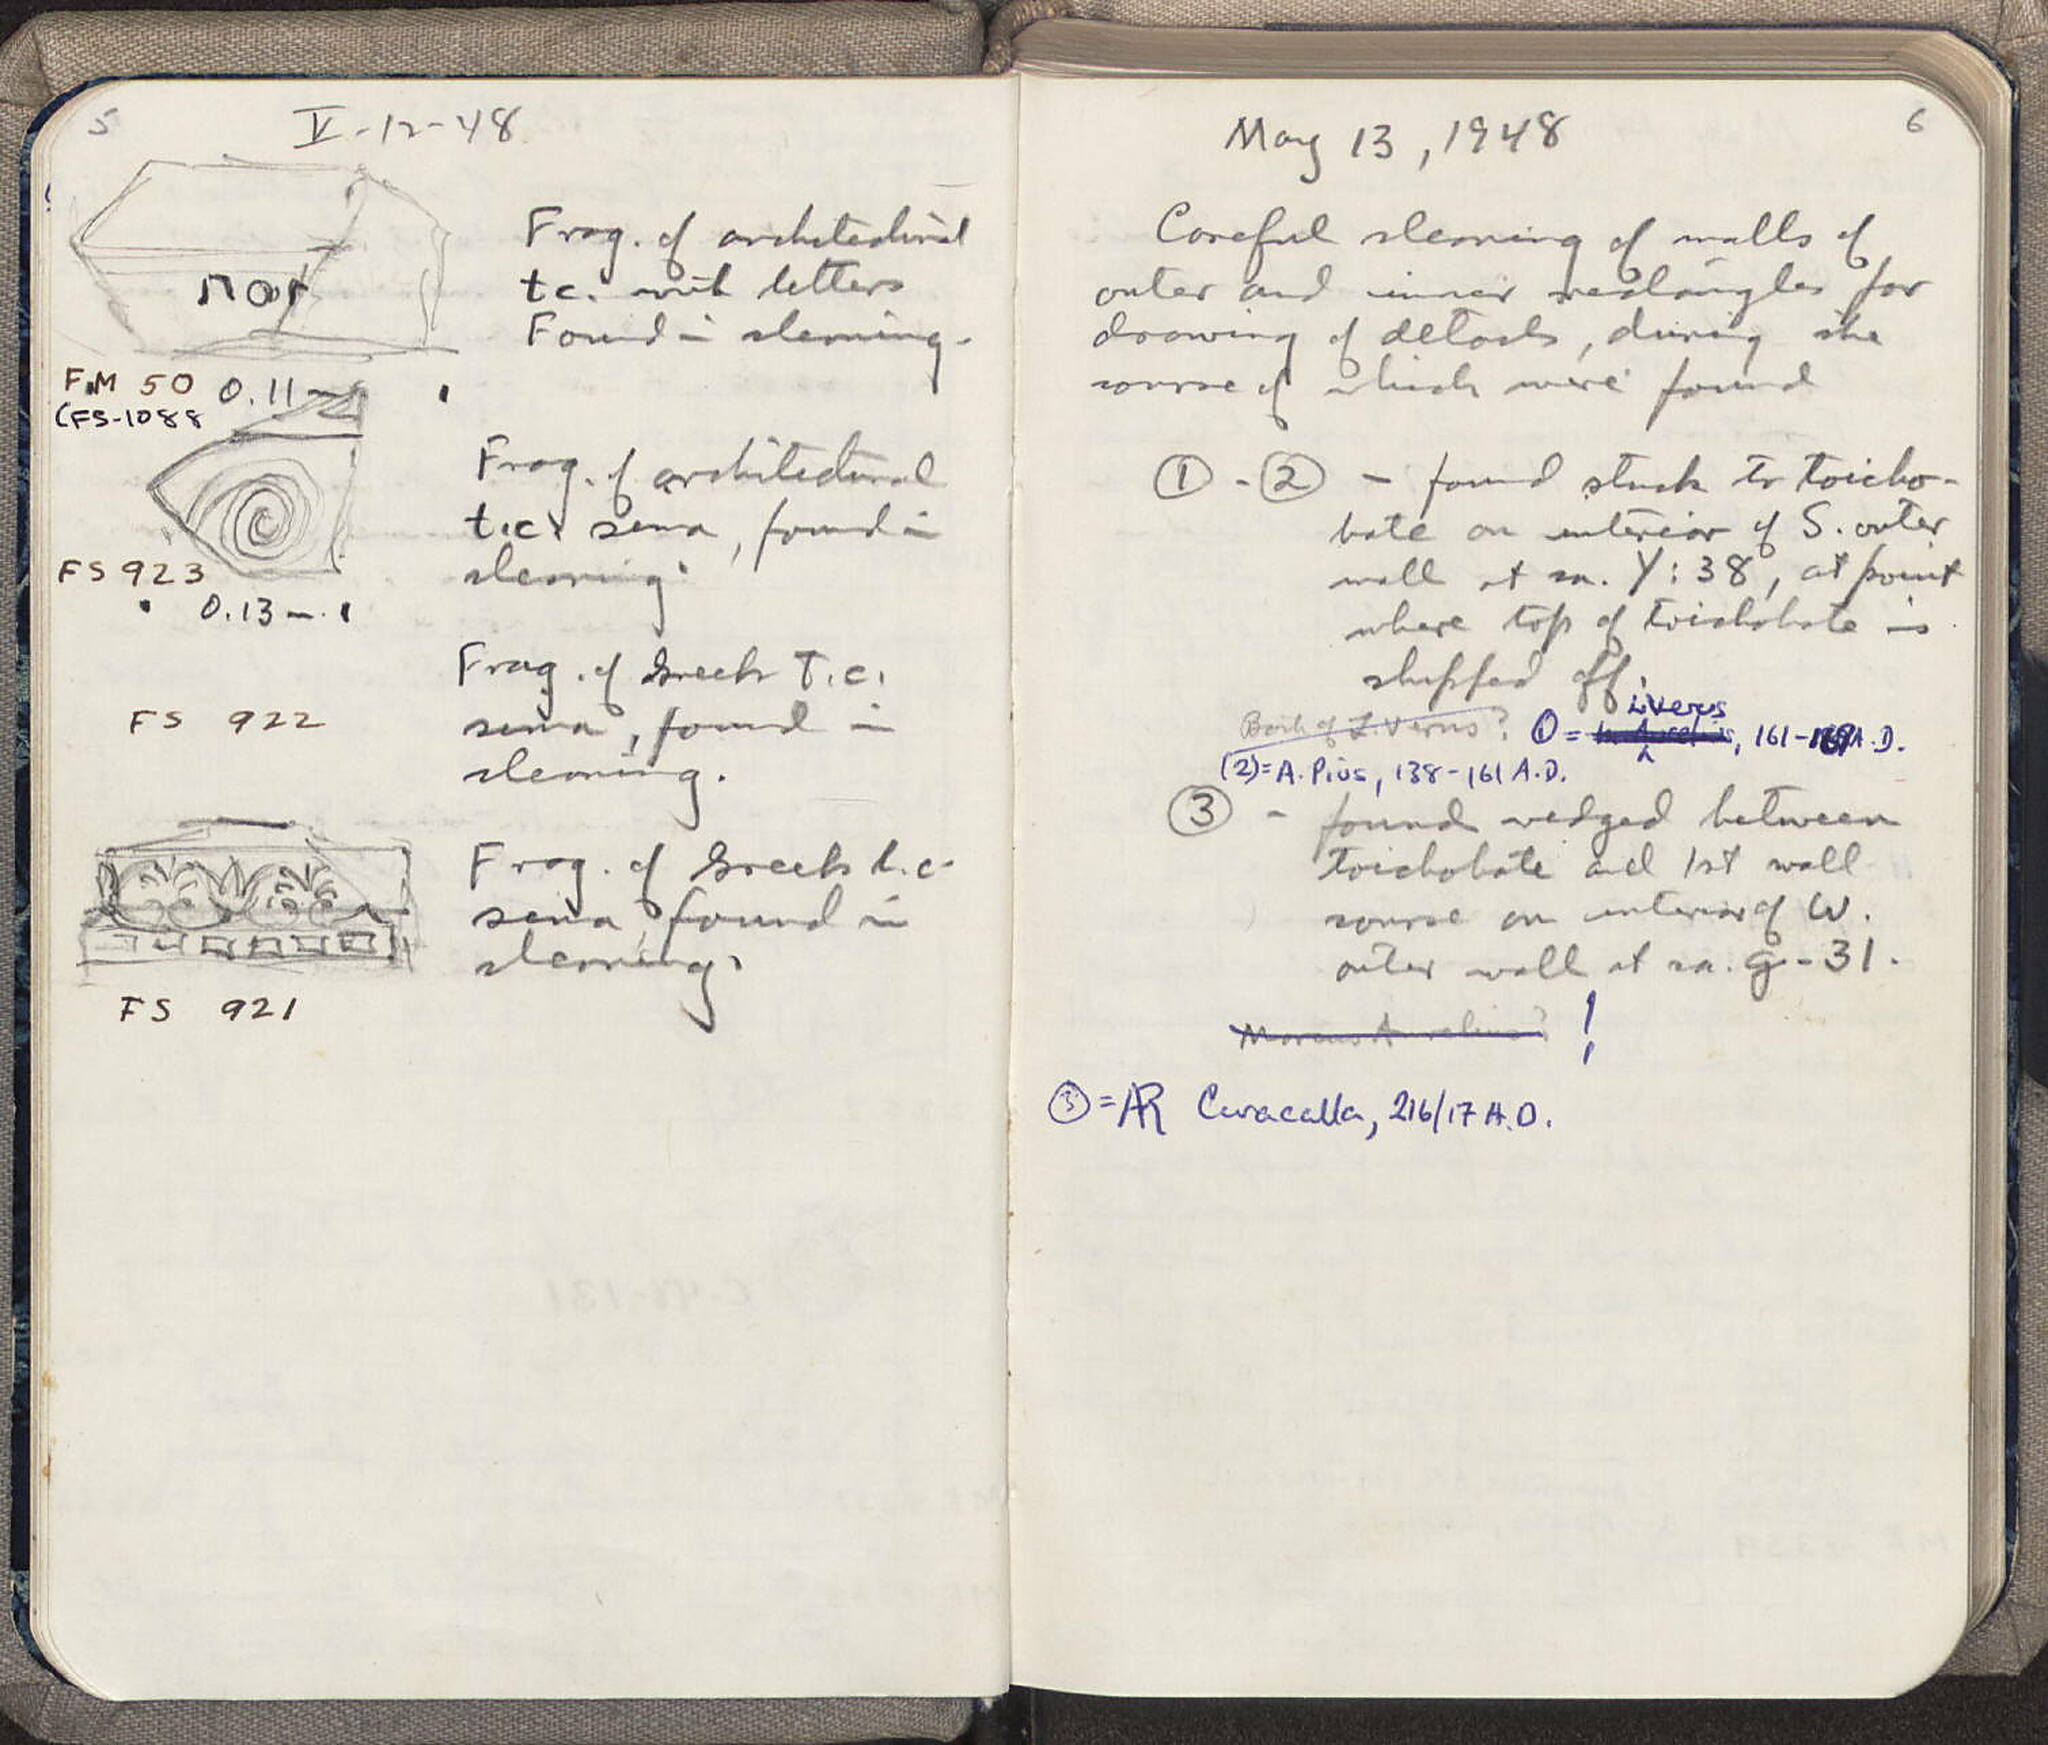 5
V-12-48
ΠΟΥ
Frag. of architectural
t.c. with letters
Found in cleaning.
FM 50 0.11 m
(FS-1088
Frag. of architectural
t.c. sima, found in
cleaning.
FS 923
0.13 m.
Frag. of Greek T.c.
sima, found in
cleaning.
FS 922
Frag. of Greek t.c.
sima, found in
cleaning.
FS 921
6
May 13, 1948
Careful cleaning of walls of
outer and inner rectangles for
drawing of details, during the
course of which were found
① - ② - found stuck to toicho-
bate on interior of S. outer
wall at ca. Y:38, at point
where top of toichobate is
chipped off.
Both of L. Verus? ① = L. Verus, 161-169 A.D.
(2) = A. Pius, 138-161 A.D.
③ - found wedged between
toichobate and 1st wall
course on interior of W.
outer wall at ca. g-31.
Marcus Aurelius? !
③ = AR Caracalla, 216/17 A.D.